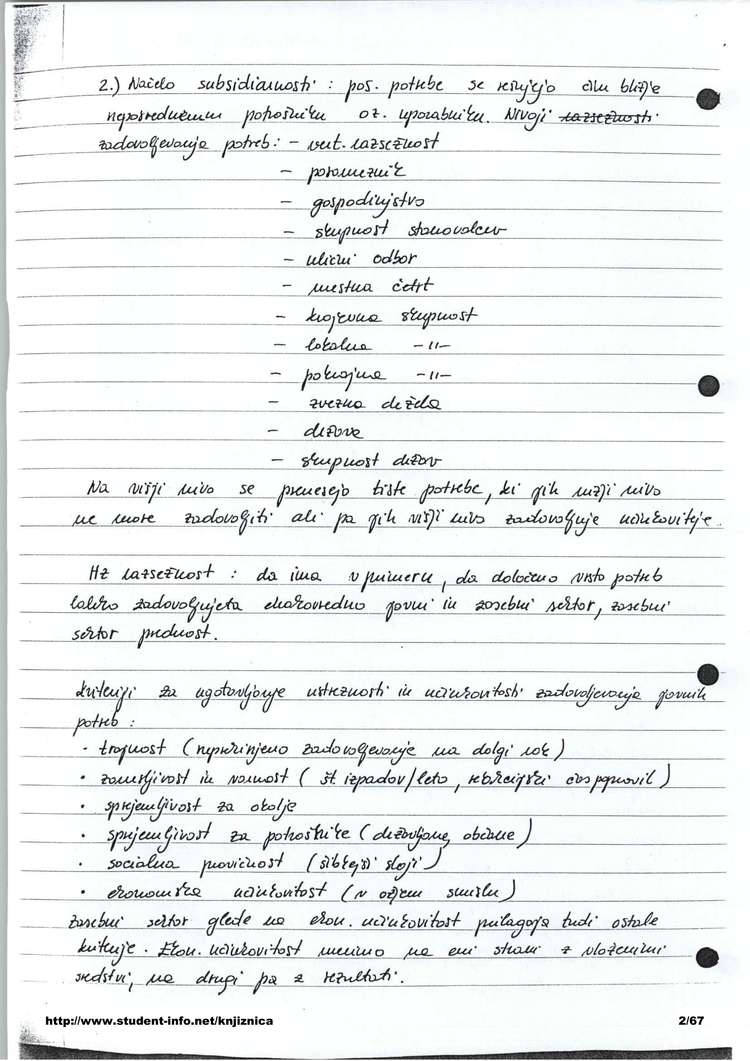 2.) Načelo subsidiarnosti : pos. potrebe se rešujejo čim bližje
neposrednemu potrošniku oz. uporabniku. Nivoji razsežnosti
zadovoljevanja potreb: - vert. razsežnost
- posameznik
- gospodinjstvo
- skupnost stanovalcev
- ulični odbor
- mestna četrt
- krajevna skupnost
- lokalna -11-
- pokrajina -11-
- zvezna dežela
- država
- skupnost držav
Na višji nivo se prenesejo tiste potrebe, ki jih nižji nivo
ne more zadovoljiti ali pa jih višji nivo zadovoljuje učinkoviteje.
Hz razsežnost : da ima v primeru, da določeno vrsto potreb
lahko zadovoljujeta enakovredno javni in zasebni sektor, zasebni
sektor prednost.
Kriteriji za ugotavljanje ustreznosti in učinkovitosti zadovoljevanja javnih
potreb :
· trajnost (neprekinjeno zadovoljevanje na dolgi rok)
· zanesljivost in varnost (št. izpadov/leto, reakcijski čas popravil)
· sprejemljivost za okolje
· sprejemljivost za potrošnike (državljane, občane)
· socialna pravičnost (šibkejši sloji)
· ekonomska učinkovitost (v ožjem smislu)
Zasebni sektor glede na ekon. učinkovitost prilagaja tudi ostale
kriterije. Ekon. učinkovitost merimo na eni strani z vloženimi
sredstvi, na drugi pa z rezultati.
http://www.student-info.net/knjiznica 2/67